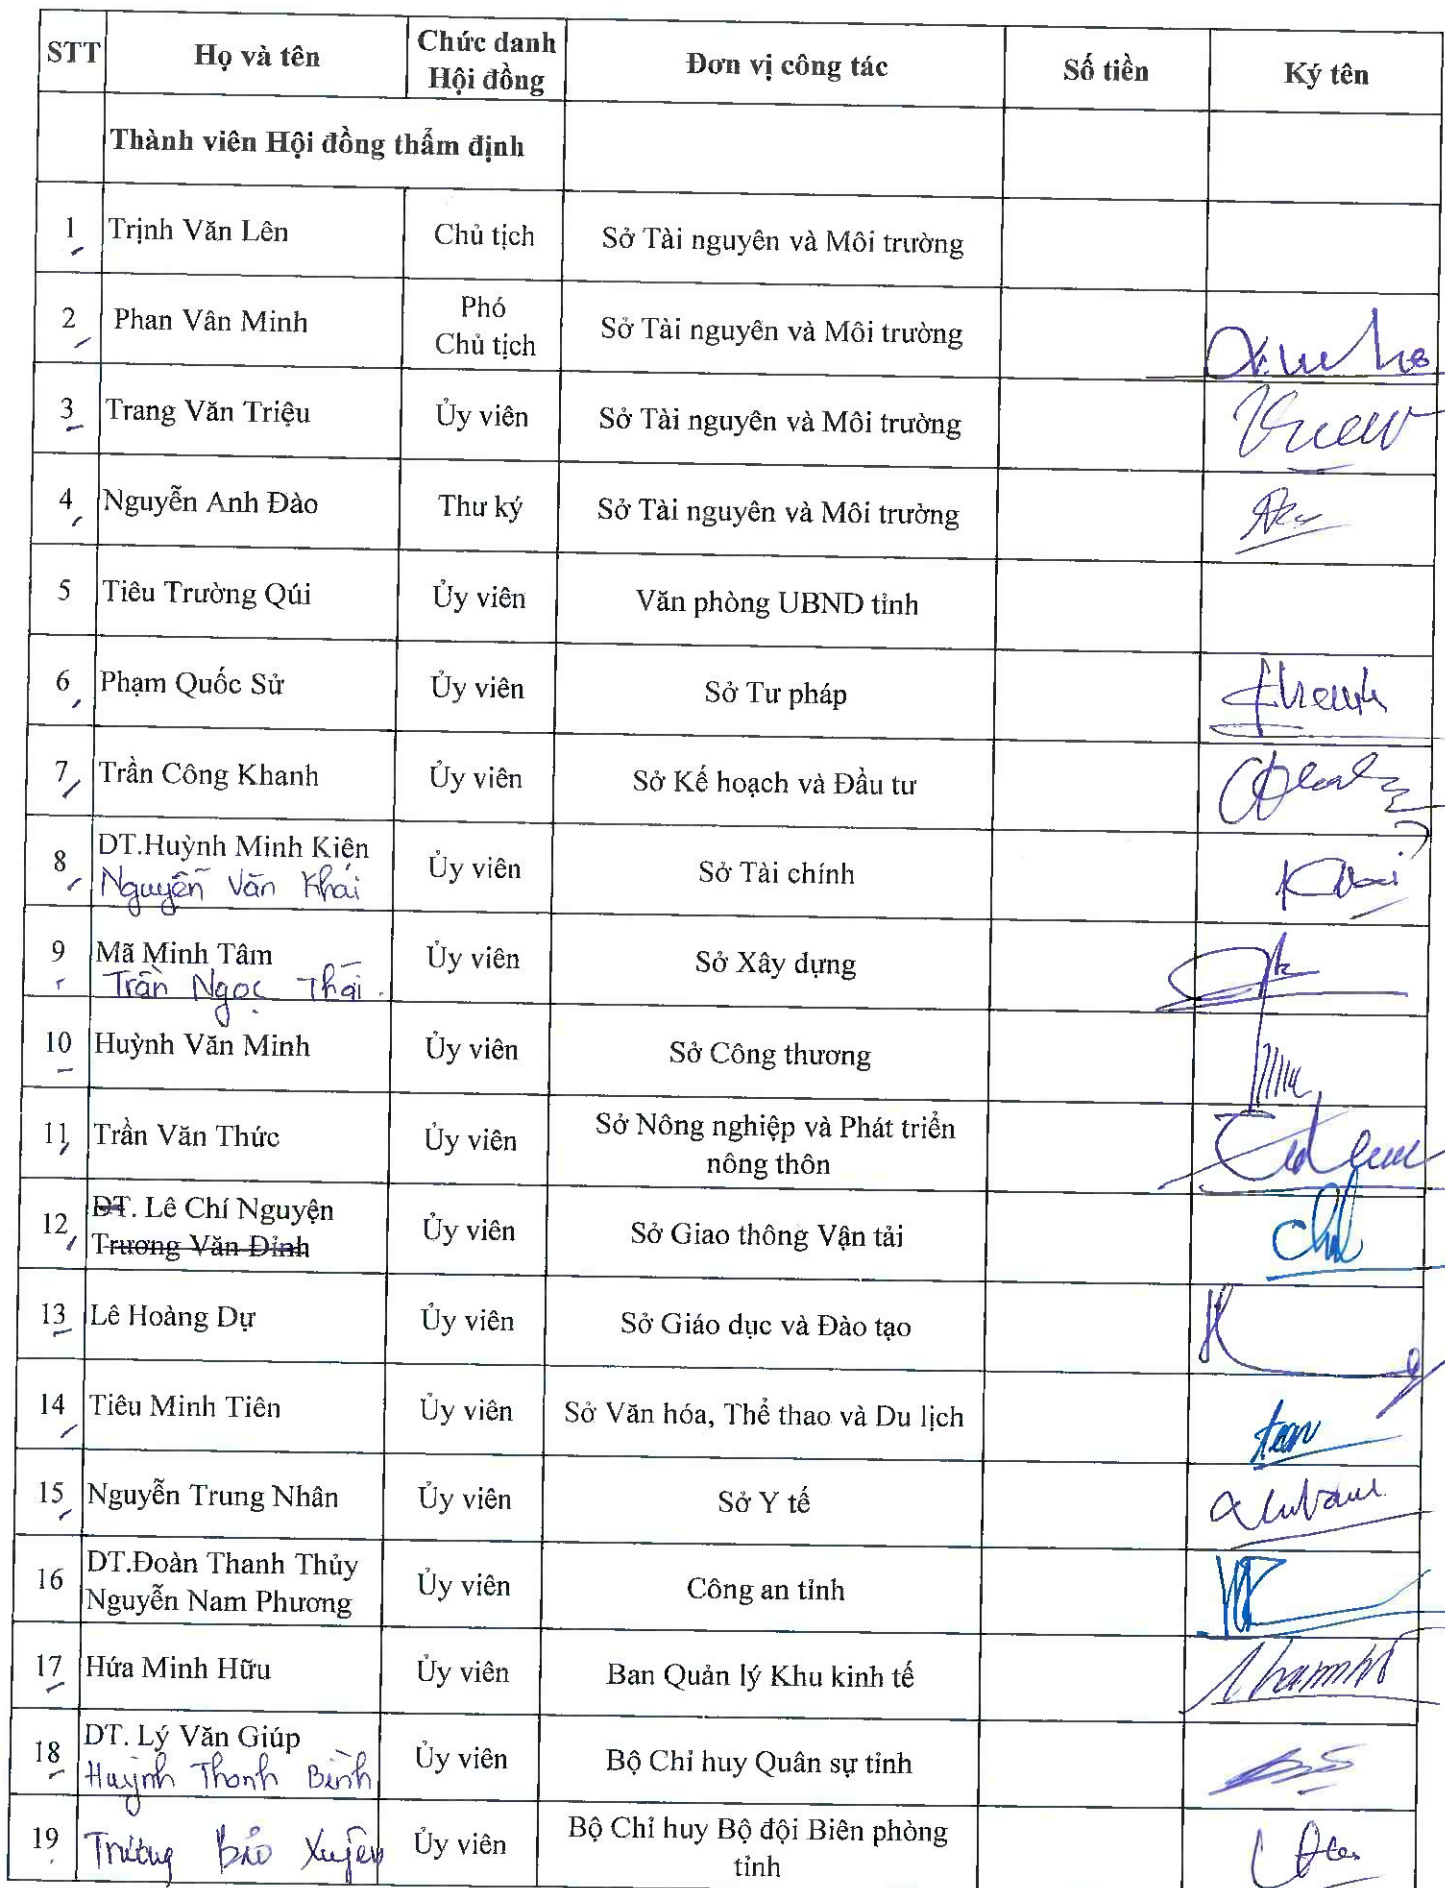 STT Họ và tên Chức danh Hội đồng Đơn vị công tác Số tiền Ký tên
Thành viên Hội đồng thẩm định
1 Trịnh Văn Lên Chủ tịch Sở Tài nguyên và Môi trường
2 Phan Vân Minh Phó Chủ tịch Sở Tài nguyên và Môi trường
3 Trang Văn Triệu Ủy viên Sở Tài nguyên và Môi trường
4 Nguyễn Anh Đào Thư ký Sở Tài nguyên và Môi trường
5 Tiêu Trường Qúi Ủy viên Văn phòng UBND tỉnh
6 Phạm Quốc Sử Ủy viên Sở Tư pháp
7 Trần Công Khanh Ủy viên Sở Kế hoạch và Đầu tư
8 DT.Huỳnh Minh Kiên Ủy viên Sở Tài chính
Nguyễn Văn Khái
9 Mã Minh Tâm Ủy viên Sở Xây dựng
Trần Ngọc Thái.
10 Huỳnh Văn Minh Ủy viên Sở Công thương
11 Trần Văn Thức Ủy viên Sở Nông nghiệp và Phát triển nông thôn
12 ĐT. Lê Chí Nguyện Ủy viên Sở Giao thông Vận tải
Trương Văn Đỉnh
13 Lê Hoàng Dự Ủy viên Sở Giáo dục và Đào tạo
14 Tiêu Minh Tiên Ủy viên Sở Văn hóa, Thể thao và Du lịch
15 Nguyễn Trung Nhân Ủy viên Sở Y tế
16 DT.Đoàn Thanh Thủy Ủy viên Công an tỉnh
Nguyễn Nam Phương
17 Hứa Minh Hữu Ủy viên Ban Quản lý Khu kinh tế
18 DT. Lý Văn Giúp Ủy viên Bộ Chỉ huy Quân sự tỉnh
Huỳnh Thanh Bình
19 Trương Bảo Xuyên Ủy viên Bộ Chỉ huy Bộ đội Biên phòng tỉnh